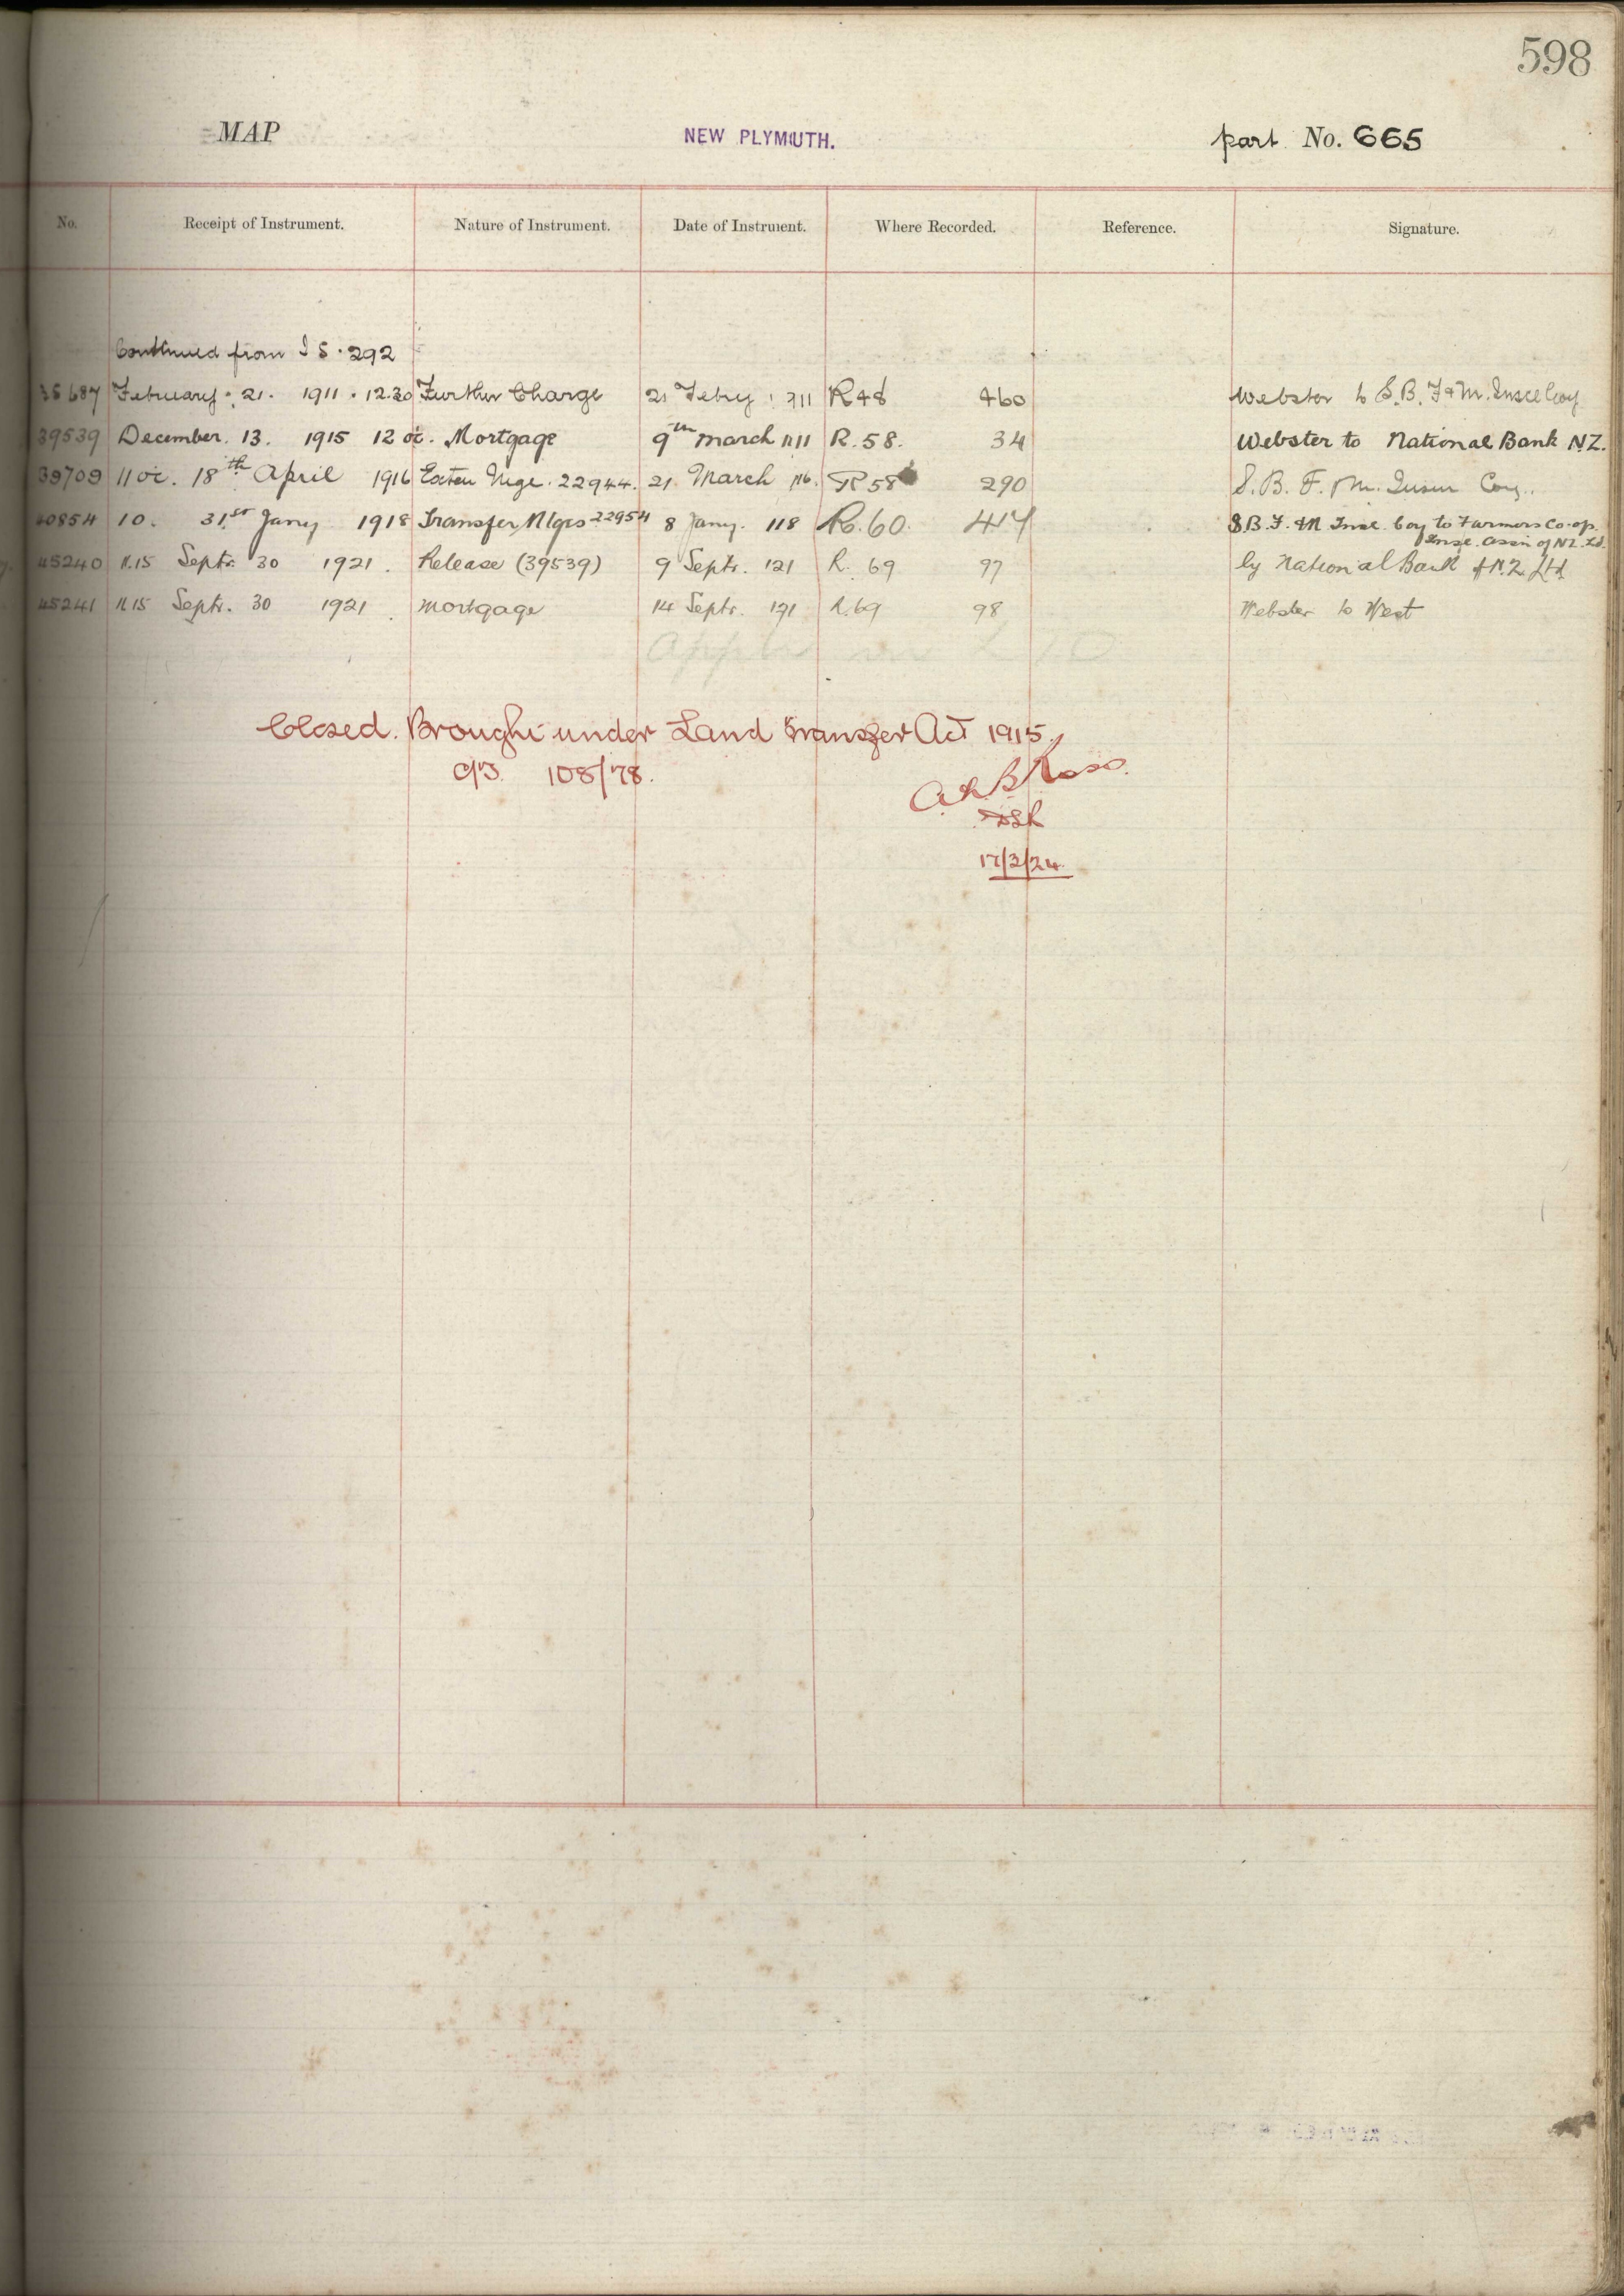 598
MAP NEW PLYMOUTH. part No. 665
No. Receipt of Instrument. Nature of Instrument. Date of Instrument. Where Recorded. Reference. Signature.
Continued from I 8. 292
35687 February. 21. 1911. 12.30 Further Charge 21 Febry 1911 R48 460 Webster to S.B. F & M. Insce Coy
39539 December. 13. 1915 12 oc. Mortgage 9th March 1911 R. 58. 34 Webster to National Bank N.Z.
39709 11 oc. 18th April 1916 Mge. 22944. 21 March 116. R 58 290 S. B. F. & M. Insur Coy..
40854 10. 31st Jany 1918 Transfer Mtges 22954 8 Jany. 118 R. 60. 417 S.B.F. & M Insce. Coy to Farmers Co-op.
Insce. Assn of NZ. Ld.
45240 11.15 Septr. 30 1921. Release (39539) 9 Septr. 121 R. 69 97 by National Bank of N.Z. Ltd
45241 11.15 Septr. 30 1921. Mortgage 14 Septr. 121 R. 69 98 Webster to West
Closed. Brought under Land Transfer Act 1915.
108/78.
DLR
17/3/24